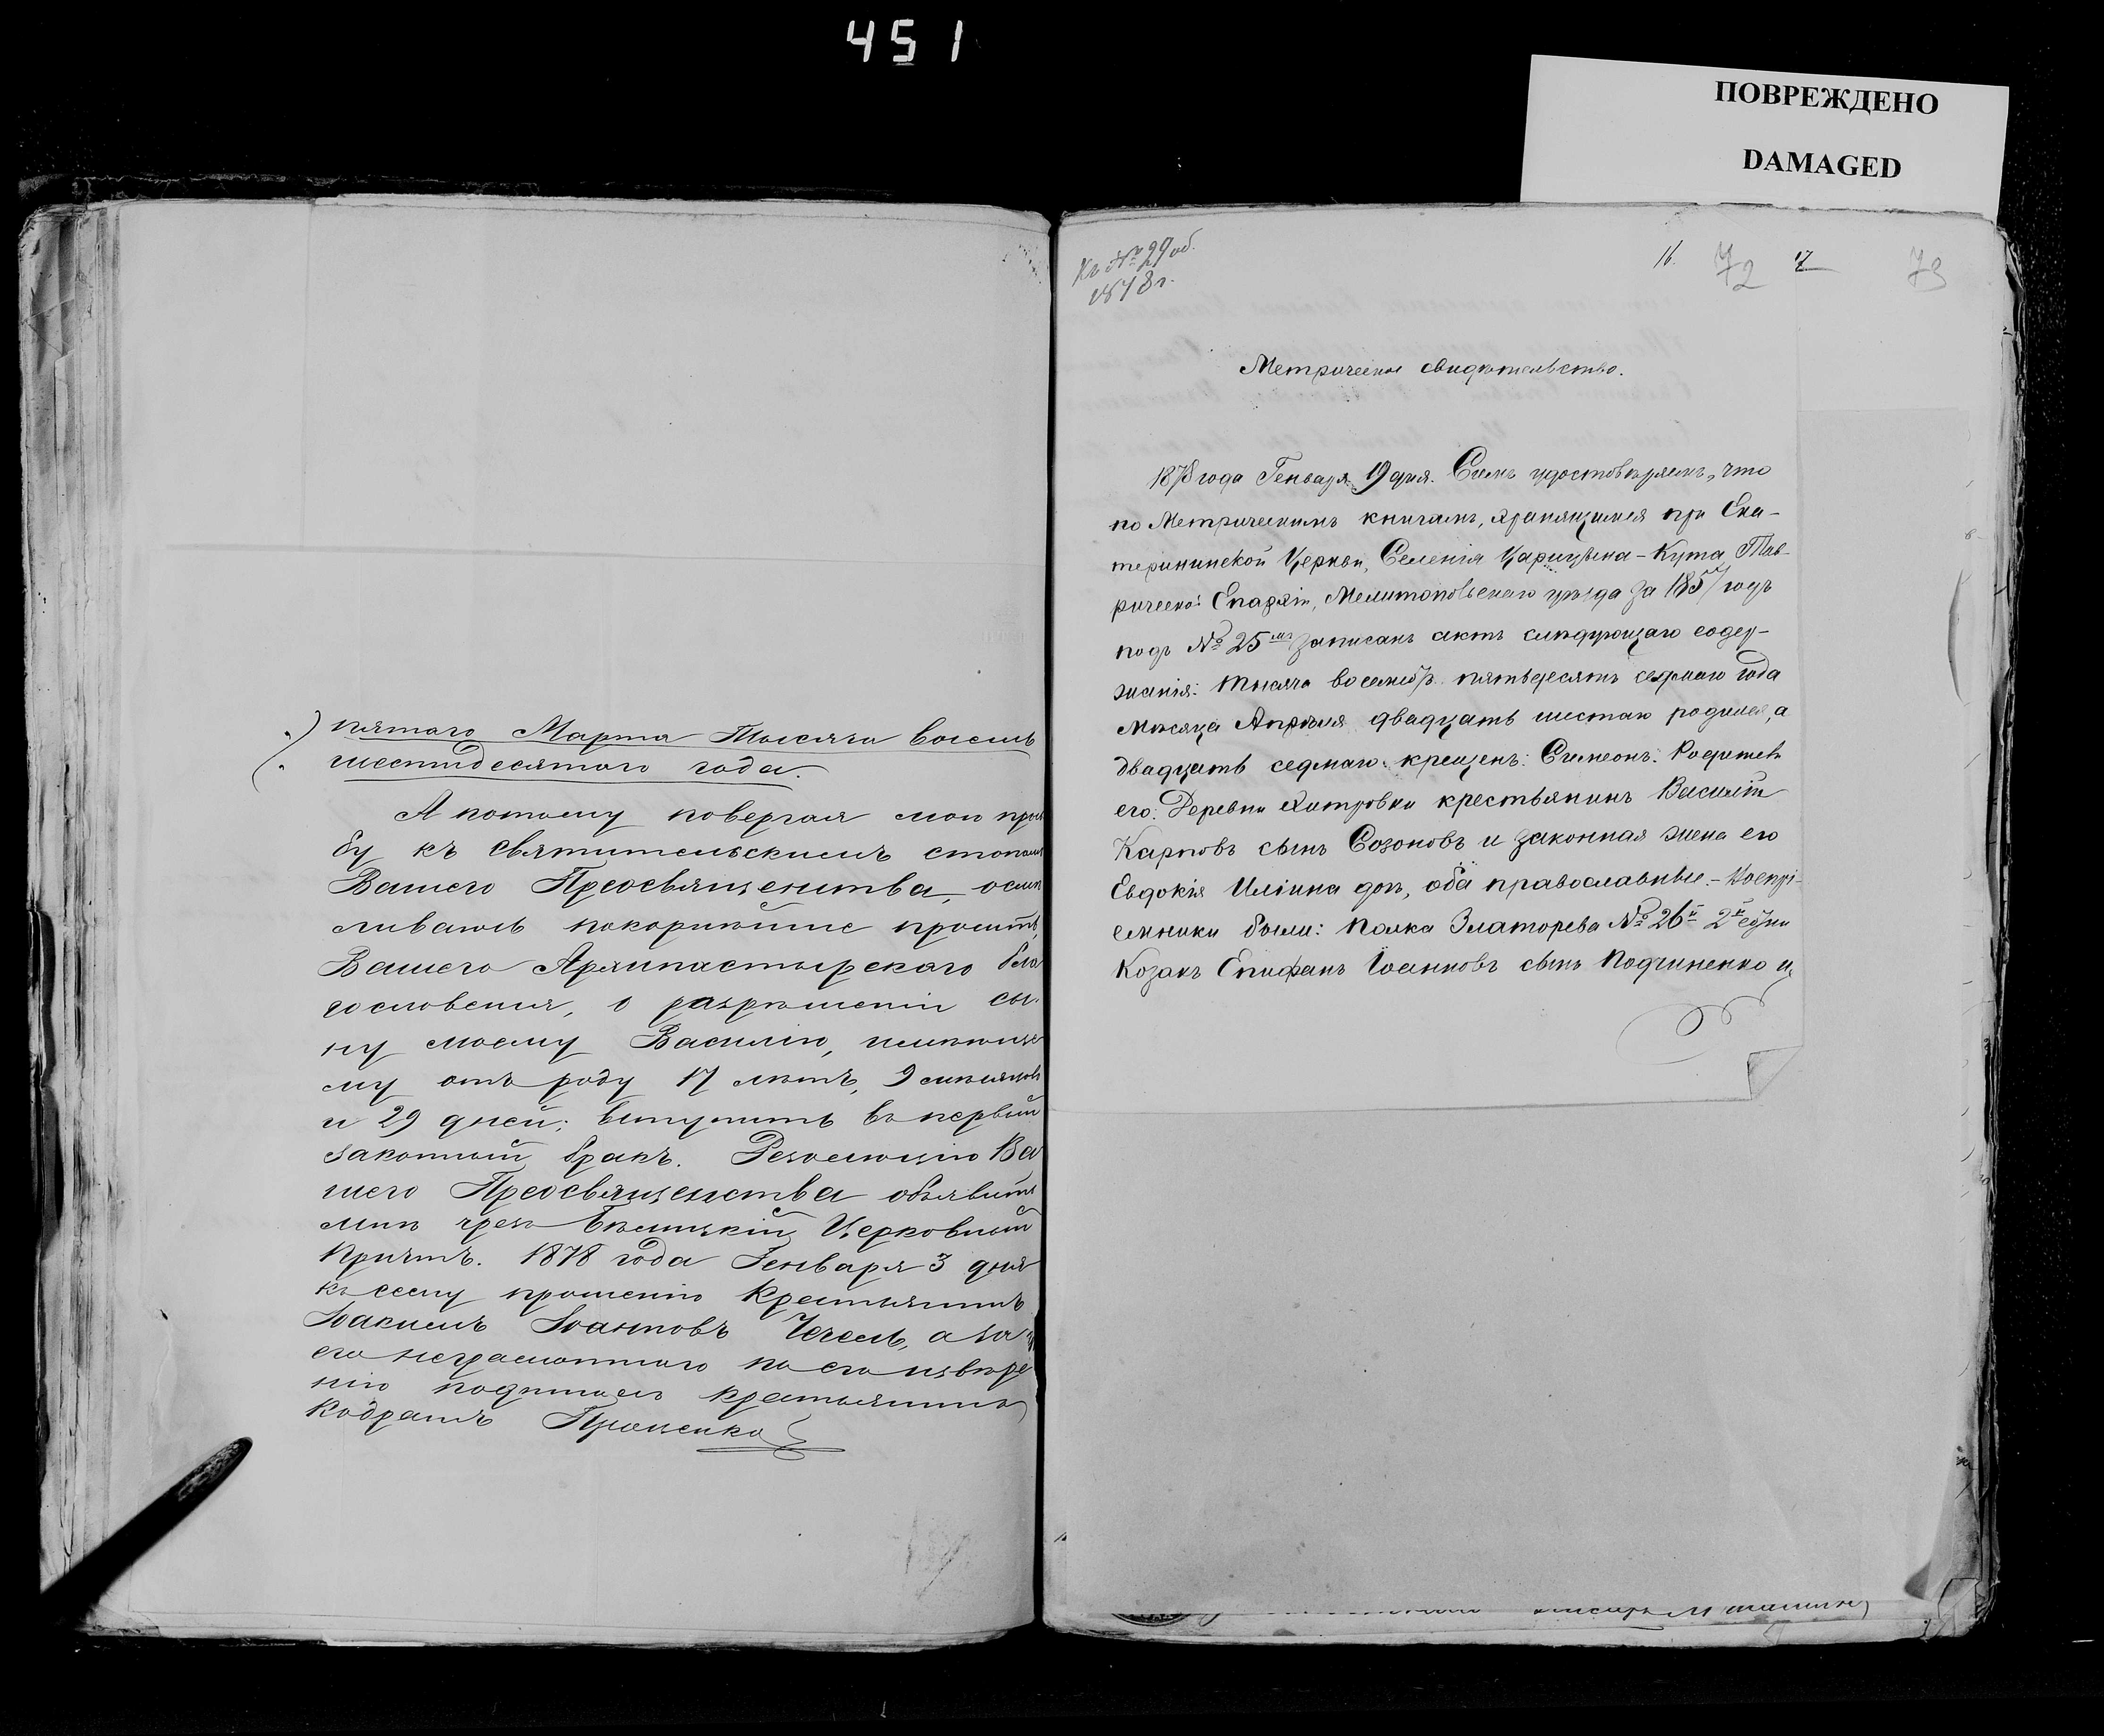 451
ПОВРЕЖДЕНО
DAMAGED
пятаго Марта Тысяча восемь
шестидесятого года.
А потому повергая мою прось
бу къ святительскимъ стопамъ
Вашего Преосвященства, осмѣ
ливаюсь покорнѣйше просить
Вашего Архипастырскаго бла
гословенія, о разрѣшеніи сы-
ну моему Василію, имѣюще
му отъ роду 17 лѣтъ, 9 мѣсяцовъ
и 29 дней; вступить въ первый
законный бракъ. Резолюцію Ва
шего Преосвященства объявить
мнѣ чрезъ Церковный
Причтъ. 1878 года Генваря 3 дня
къ сему прошенію Крестьянинъ
Іоакимъ Іоанновъ Чечель, а за
его неграмотнаго по его
нію подписалъ крестьянинъ
Кодратъ Проценко
Къ № 29 об.
1878 г.
16. 72 17 73
Метрическое свидѣтельство.
1878 года Генваря 19 дня. Симъ удостовѣряемъ, что
по Метрическимъ книгамъ, хранящимся при Ека-
терининской Церкви, Селенія Царицына-Кута Тав-
рической Епархіи, Мелитопольскаго уѣзда за 1857 годъ
подъ № 25мъ записанъ актъ слѣдующаго содер-
жанія: тысяча восемьсотъ пятьдесятъ седмаго года
Мѣсяца Апрѣля двадцать шестаго родился, а
двадцать седмаго крещенъ: Симеонъ. Родители
его: Деревни Хитровки крестьянинъ Василій
Карповъ сынъ Созоновъ и законная жена его
Евдокія Иліина дочь, оба православные. - Воспрі-
емники были: Полка Златорева № 26й 2й сотни
Козакъ Епифанъ Іоанновъ сынъ Подчиненко и